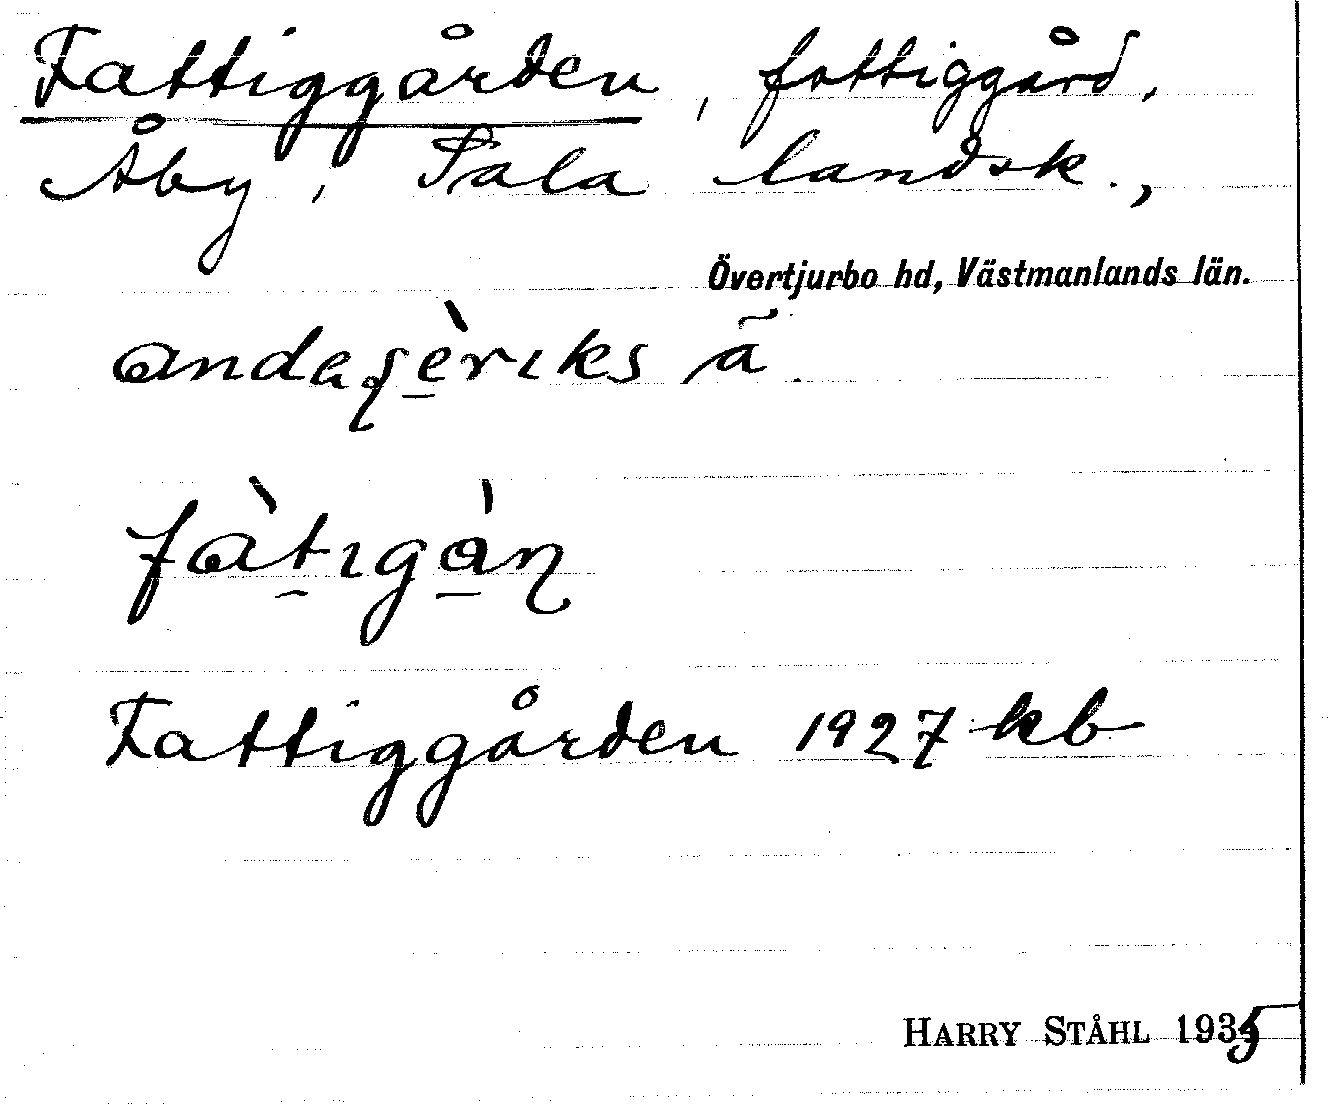 Fattiggården, fattiggård,
Åby, Sala landsk.,
Övertjurbo hd, Västmanlands län.
fàtıgàn
Fattiggården 1927 kb
HARRY STÅHL 1935